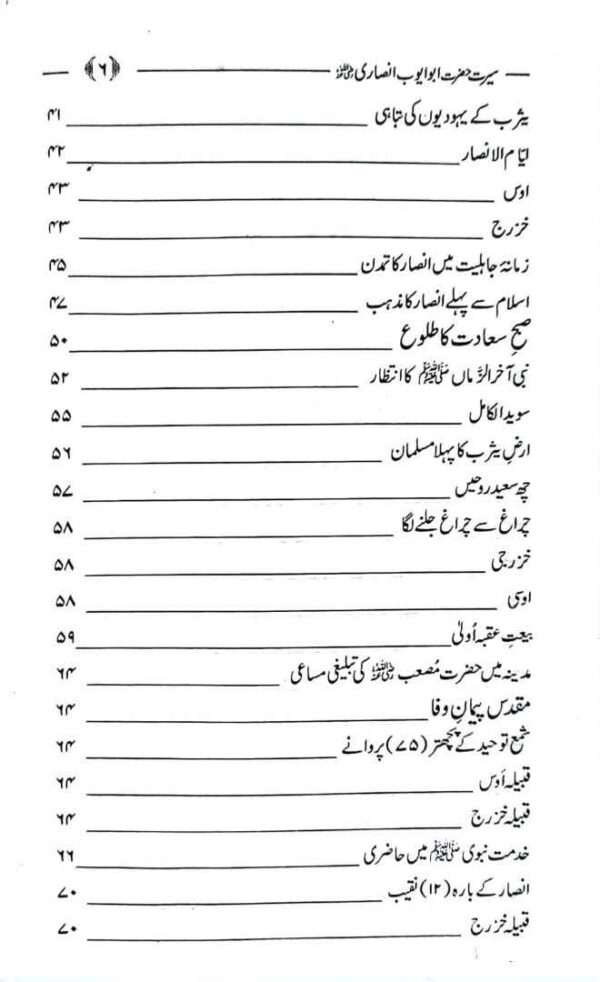 سیرت حضرت ابو ایوب انصاری رضی اللہ عنہ ﴿۶﴾
یثرب کے یہودیوں کی تباہی ۴۱
ایّام الانصار ۴۲
اوس ۴۳
خزرج ۴۳
زمانۂ جاہلیت میں انصار کا تمدن ۴۵
اسلام سے پہلے انصار کا مذہب ۴۷
صبحِ سعادت کا طلوع ۵۰
نبی آخر الزّماں ﷺ کا انتظار ۵۲
سوید الکامل ۵۵
ارضِ یثرب کا پہلا مسلمان ۵۶
چھ سعید روحیں ۵۷
چراغ سے چراغ جلنے لگا ۵۸
خزرجی ۵۸
اوسی ۵۸
بیعتِ عقبہ اُولیٰ ۵۹
مدینہ میں حضرت مُصعب رضی اللہ عنہ کی تبلیغی مساعی ۶۴
مقدس پیمانِ وفا ۶۴
شمع توحید کے پچھتر (۷۵) پروانے ۶۴
قبیلہ اَوس ۶۴
قبیلہ خزرج ۶۴
خدمت نبوی ﷺ میں حاضری ۶۶
انصار کے بارہ (۱۲) نقیب ۷۰
قبیلہ خزرج ۷۰